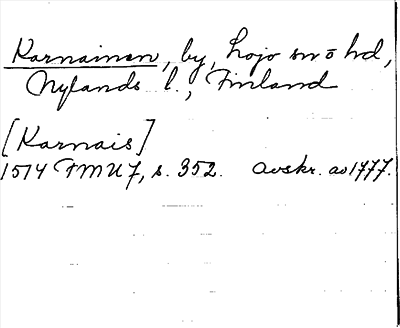 Karnainen, by, Lojo sn o hd,
Nylands l., Finland
[Karnais]
1574 FMU 7, s. 352. Avskr. av 1777.